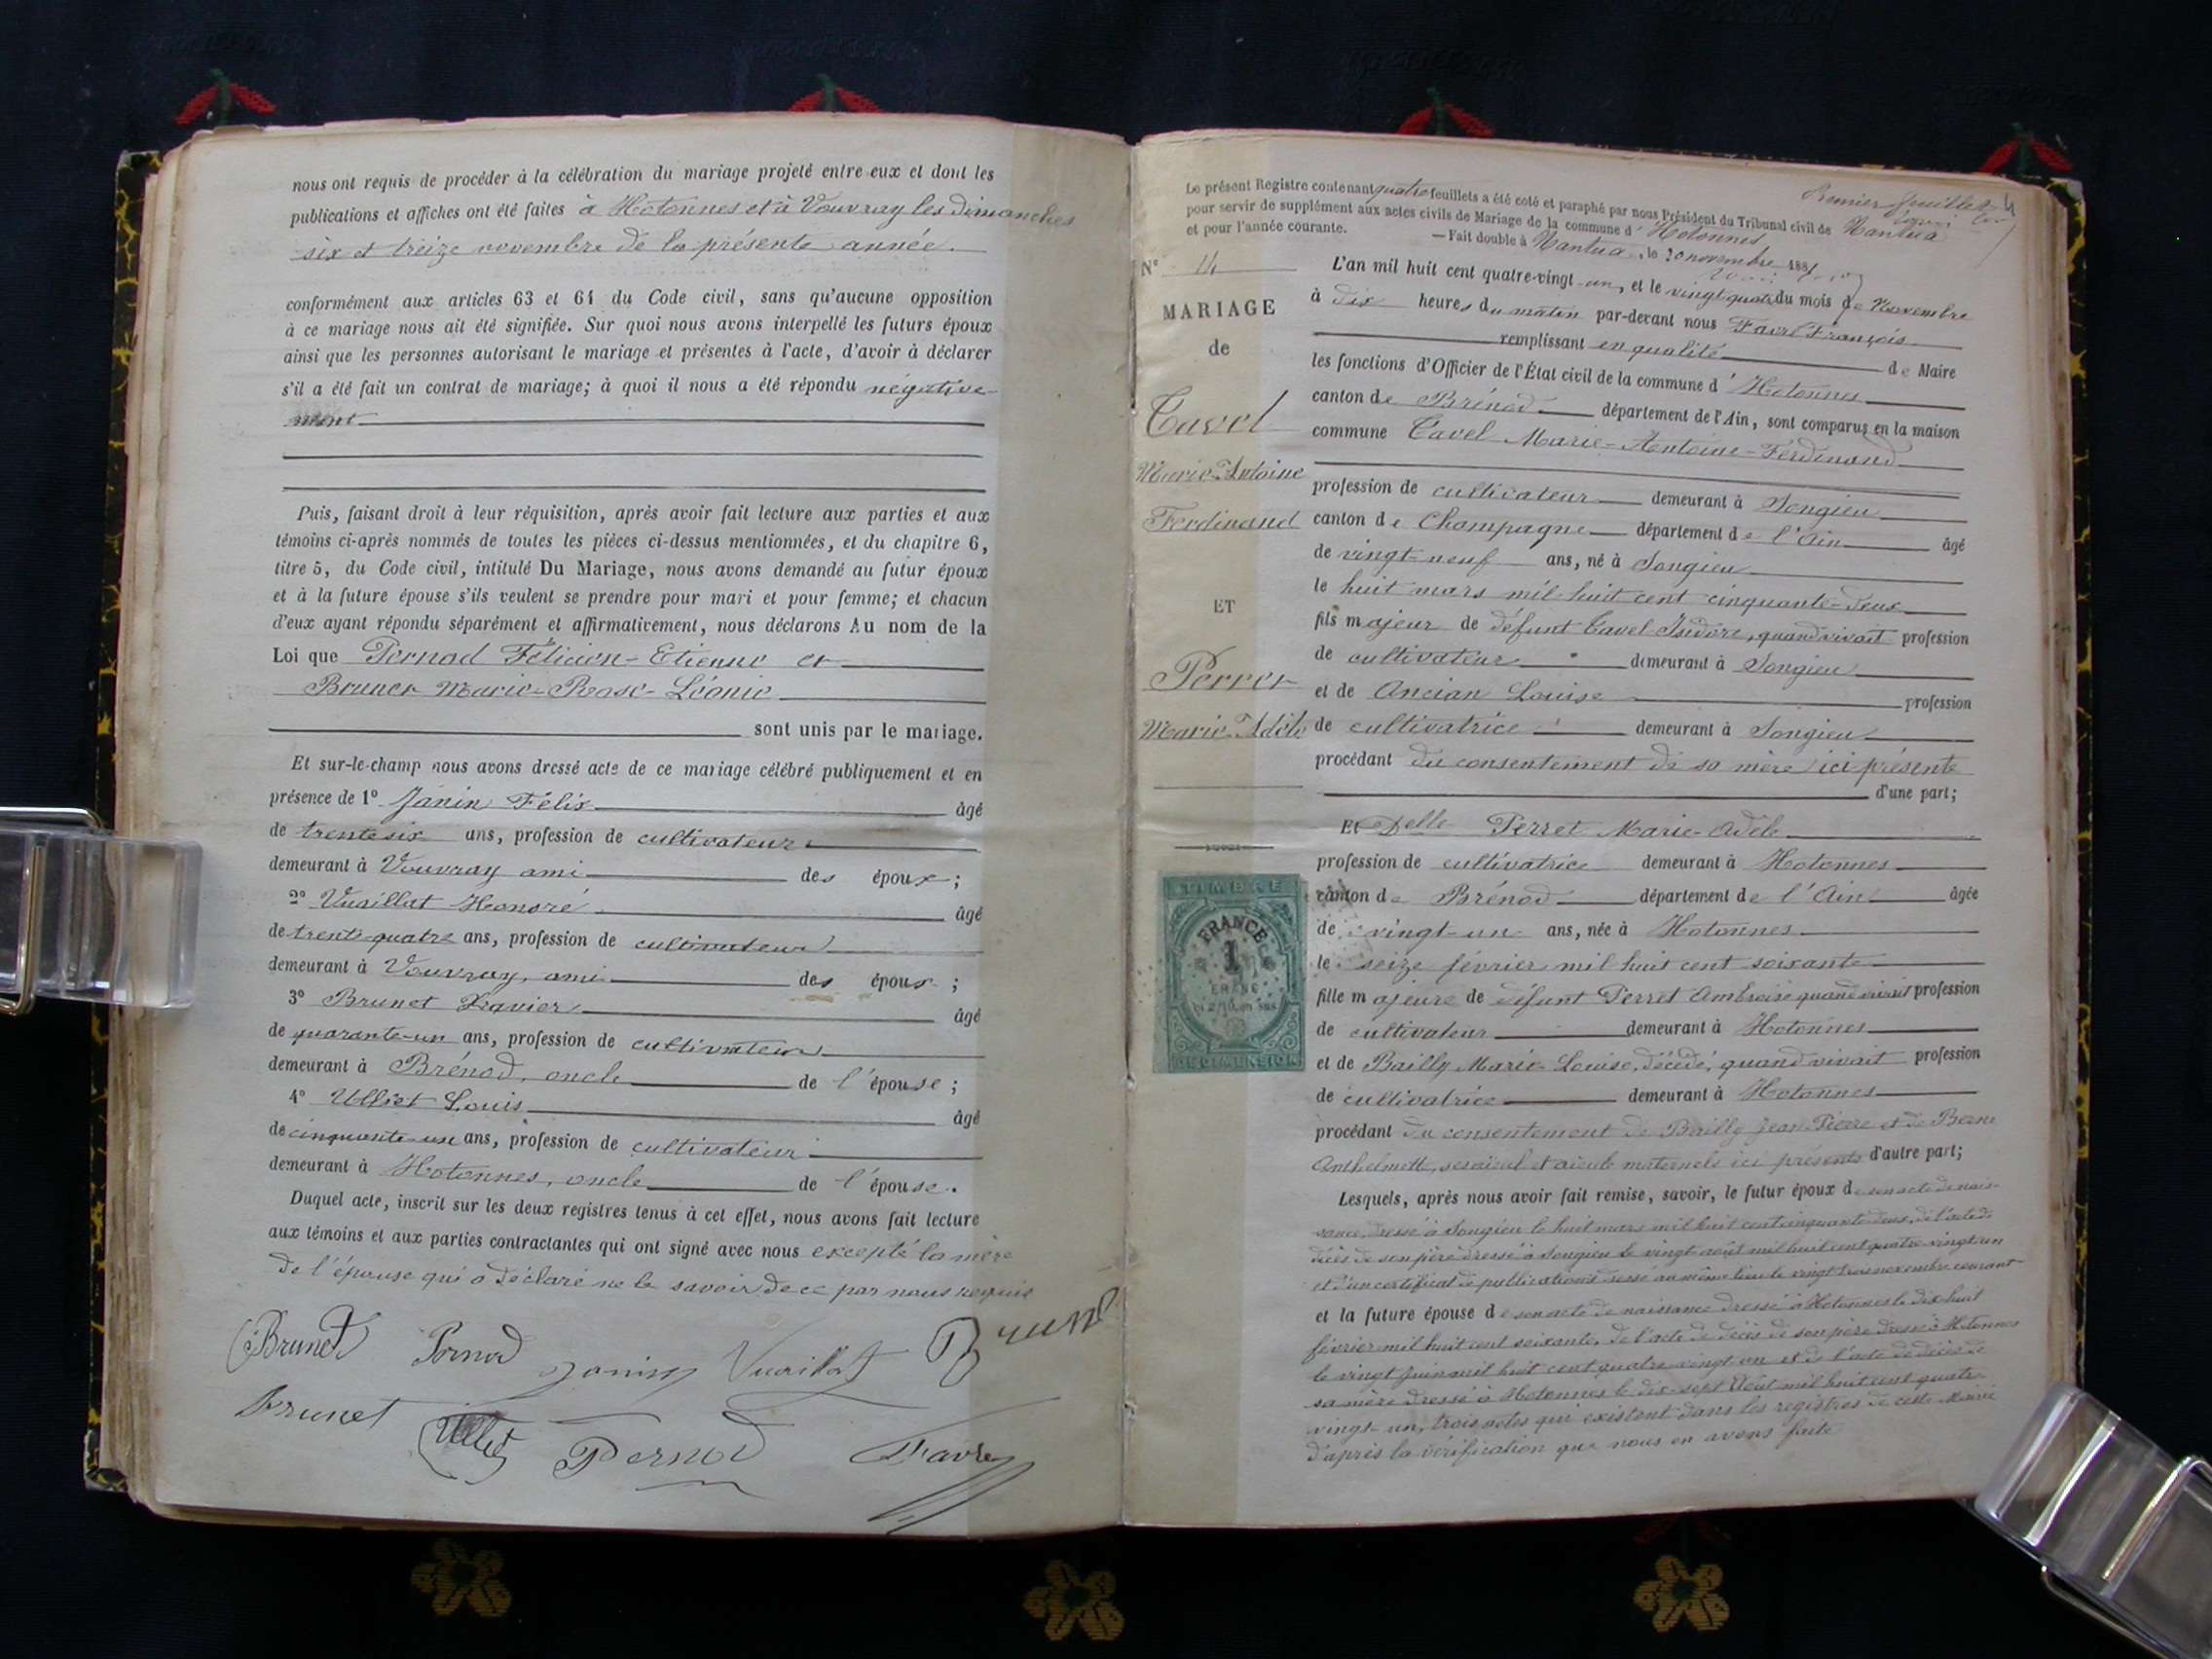 nous ont requis de procéder à la célébration du mariage projeté entre eux et dont les
publications et affiches ont été faites à Hotonnes et à Vouvray les dimanches
six et treize novembre de la présente année.
conformément aux articles 63 et 64 du Code civil, sans qu'aucune opposition
à ce mariage nous ait été signifiée. Sur quoi nous avons interpellé les futurs époux
ainsi que les personnes autorisant le mariage et présentes à l'acte, d'avoir à déclarer
s'il a été fait un contrat de mariage; à quoi il nous a été répondu négative-
ment
Puis, faisant droit à leur réquisition, après avoir fait lecture aux parties et aux
témoins ci-après nommés de toutes les pièces ci-dessus mentionnées, et du chapitre 6,
titre 5, du Code civil, intitulé Du Mariage, nous avons demandé au futur époux
et à la future épouse s'ils veulent se prendre pour mari et pour femme; et chacun
d'eux ayant répondu séparément et affirmativement, nous déclarons Au nom de la
Loi que Pernod Félicien-Etienne et
Brunet Marie-Rose-Léonie
sont unis par le mariage.
Et sur-le-champ nous avons dressé acte de ce mariage célébré publiquement et en
présence de 1º Janin Félix âgé
de trente six ans, profession de cultivateur
demeurant à Vouvray ami des époux;
2º Vuaillat Honoré âgé
de trente-quatre ans, profession de cultivateur
demeurant à Vouvray, ami des époux;
3º Brunet Xavier âgé
de quarante-un ans, profession de cultivateur
demeurant à Brénod, oncle de l'épouse;
4º Ulliet Louis âgé
de cinquante-un ans, profession de cultivateur
demeurant à Hotonnes, oncle de l'épouse.
Duquel acte, inscrit sur les deux registres tenus à cet effet, nous avons fait lecture
aux témoins et aux parties contractantes qui ont signé avec nous excepté la mère
de l'épouse qui a déclaré ne le savoir de ce par nous requis
Brunet Pernod Janin Vuaillat Brunet
Brunet Ulliet Pernod Favre
Premier feuillet
Le présent Registre contenant quatre feuillets a été coté et paraphé par nous Président du Tribunal civil de Nantua
pour servir de supplément aux actes civils de Mariage de la commune d'Hotonnes
et pour l'année courante. — Fait double à Nantua, le 20 novembre 1881
Nº 4
MARIAGE
de
Cavel
Marie-Antoine
Ferdinand
ET
Perret
Marie-Adèle
TIMBRE
FRANCE
1
FRANC
2/10 en sus
DIMENSION
L'an mil huit cent quatre-vingt-un, et le vingt quatre du mois de Novembre
à dix heures du matin par-devant nous Favre François
remplissant en qualité de Maire
les fonctions d'Officier de l'État civil de la commune d'Hotonnes
canton de Brénod département de l'Ain, sont comparus en la maison
commune Cavel Marie-Antoine-Ferdinand
profession de cultivateur demeurant à Songieu
canton de Champagne département de l'Ain âgé
de vingt-neuf ans, né à Songieu
le huit mars mil huit cent cinquante-deux
fils majeur de défunt Cavel Isidore, quand vivait profession
de cultivateur demeurant à Songieu
et de Ancian Louise profession
de cultivatrice demeurant à Songieu
procédant du consentement de sa mère ici présente
d'une part;
Et Delle Perret Marie-Adèle
profession de cultivatrice demeurant à Hotonnes
canton de Brénod département de l'Ain âgée
de vingt-un ans, née à Hotonnes
le seize février mil huit cent soixante
fille majeure de défunt Perret Ambroise quand vivait profession
de cultivateur demeurant à Hotonnes
et de Bailly Marie-Louise, décédé, quand vivait profession
de cultivatrice demeurant à Hotonnes
procédant du consentement de Bailly Jean-Pierre et de Berne
Anthelmette, ses aïeul et aïeule maternels ici présents d'autre part;
Lesquels, après nous avoir fait remise, savoir, le futur époux de son acte de nais-
sance, dressé à Songieu le huit mars mil huit cent cinquante deux, de l'acte de
décès de son père dressé à Songieu le vingt août mil huit cent quatre-vingt-un
et d'un certificat de publications dressé au même lieu le vingt trois novembre courant
et la future épouse de son acte de naissance dressé à Hotonnes le dix-huit
février mil huit cent soixante, de l'acte de décès de son père dressé à Hotonnes
le vingt Juin mil huit cent quatre-vingt-un et de l'acte de décès de
sa mère dressé à Hotonnes le dix-sept Août mil huit cent quatre-
vingt-un, trois actes qui existent dans les registres de cette Mairie
d'après la vérification que nous en avons faite